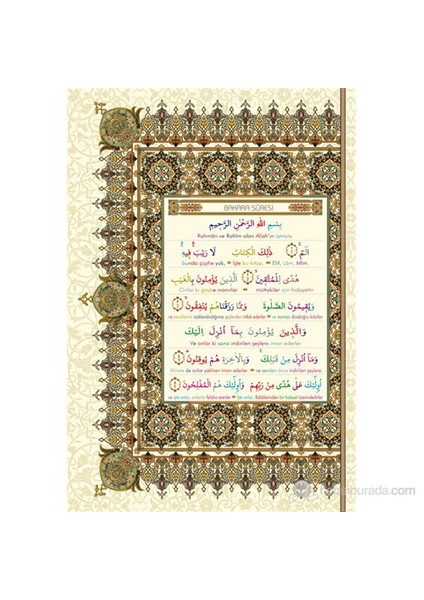 BAKARA SÛRESİ
بِسْمِ اللهِ الرَّحْمٰنِ الرَّحِيمِ
Rahmân ve Rahîm olan Allah'ın ismiyle.
الٓمٓ ذٰلِكَ الْكِتَابُ لَا رَيْبَ فِيهِ
bunda şüphe yok, İşte bu kitap, Elif, Lâm, Mîm.
هُدًى لِلْمُتَّقِينَ الَّذِينَ يُؤْمِنُونَ بِالْغَيْبِ
Onlar ki gayba inanırlar müttakiler için hidayettir.
وَيُقِيمُونَ الصَّلٰوةَ وَمِمَّا رَزَقْنَاهُمْ يُنْفِقُونَ
rızıklandırdığımız şeylerden infak ederler ve namazı
وَالَّذِينَ يُؤْمِنُونَ بِمَٓا اُنْزِلَ اِلَيْكَ
Ve onlar ki sana indirilen şeylere iman ederler
وَمَٓا اُنْزِلَ مِنْ قَبْلِكَ وَبِالْاٰخِرَةِ هُمْ يُوقِنُونَ
Ahirete de onlar iman ederler. ve senden önce indirilen şeylere,
اُولٰٓئِكَ عَلٰى هُدًى مِنْ رَبِّهِمْ وَاُولٰٓئِكَ هُمُ الْمُفْلِحُونَ
ve işte onlar, Rablerinden bir hidayet üzerindedirler